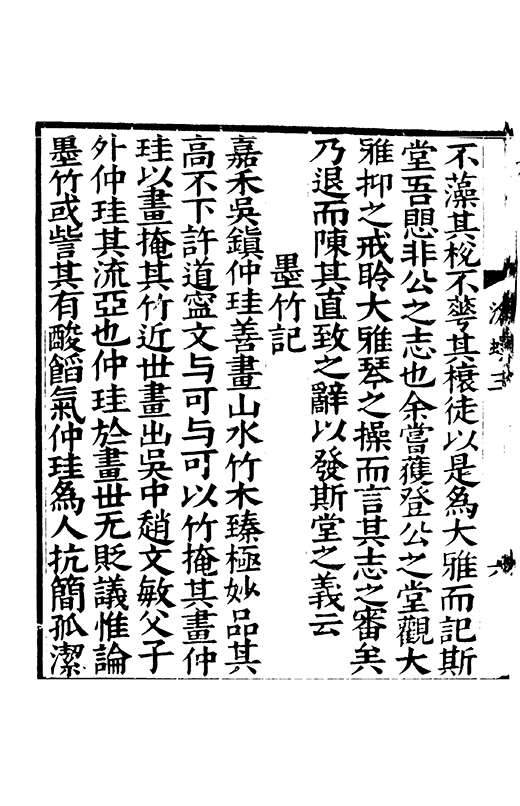 不藻其梲不萼其榱徒以是為大雅而記斯
堂吾思非公之志也余嘗獲登公之堂觀大
雅抑之戒聆大雅琴之操而言其志之審矣
乃退而陳其直致之辭以發斯堂之義云
墨竹記
嘉禾吳鎮仲珪善畫山水竹木臻極妙品其
高不下許道寧文与可与可以竹掩其畫仲
珪以畫掩其竹近世畫出吳中趙文敏父子
外仲珪其流亞也仲珪於畫世无貶議惟論
墨竹或訾其有酸餡氣仲珪為人抗簡孤潔